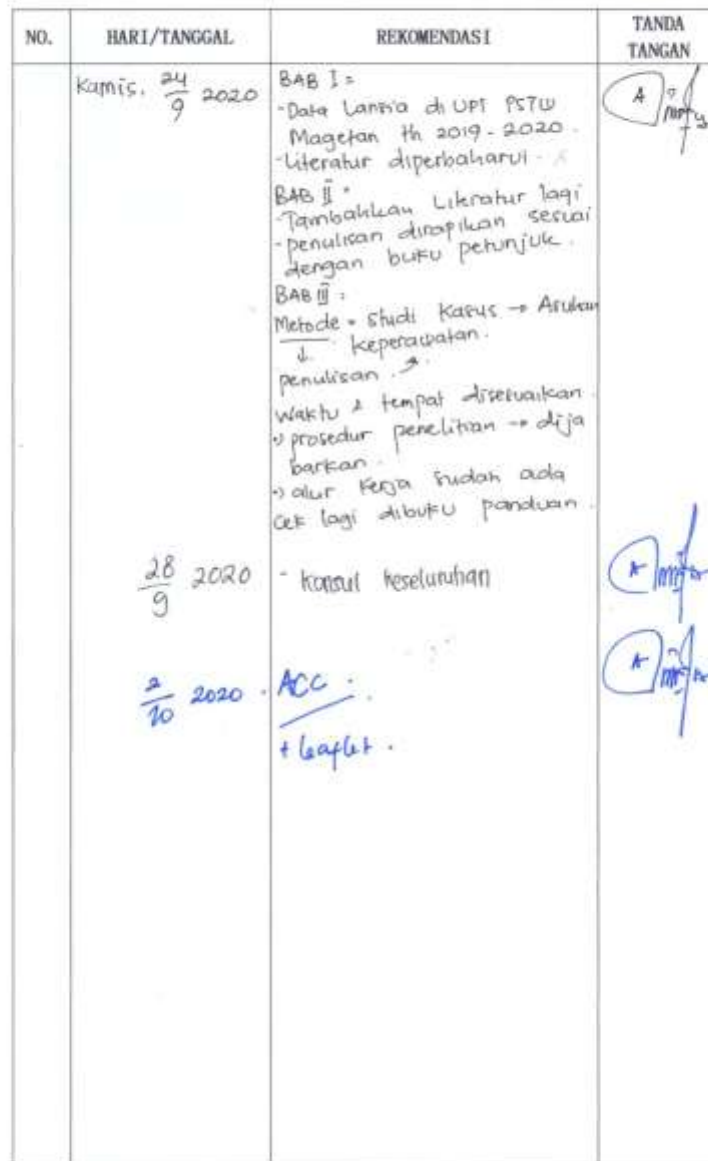 NO. HARI/TANGGAL REKOMENDASI TANDA TANGAN
Kamis, 24/9 2020 BAB I :
- Data Lansia di UPT PSTW
Magetan th 2019 - 2020.
- Literatur diperbaharui.
BAB II :
- Tambahkan Literatur lagi
- penulisan dirapikan sesuai
dengan buku petunjuk.
BAB III :
Metode = studi kasus → Asuhan
↓ keperawatan.
penulisan.
Waktu & tempat disesuaikan.
•) prosedur penelitian → dija
barkan.
•) alur kerja sudah ada
cek lagi dibuku panduan.
28/9 2020 - konsul keseluruhan
2/10 2020. ACC.
+ leaflet.